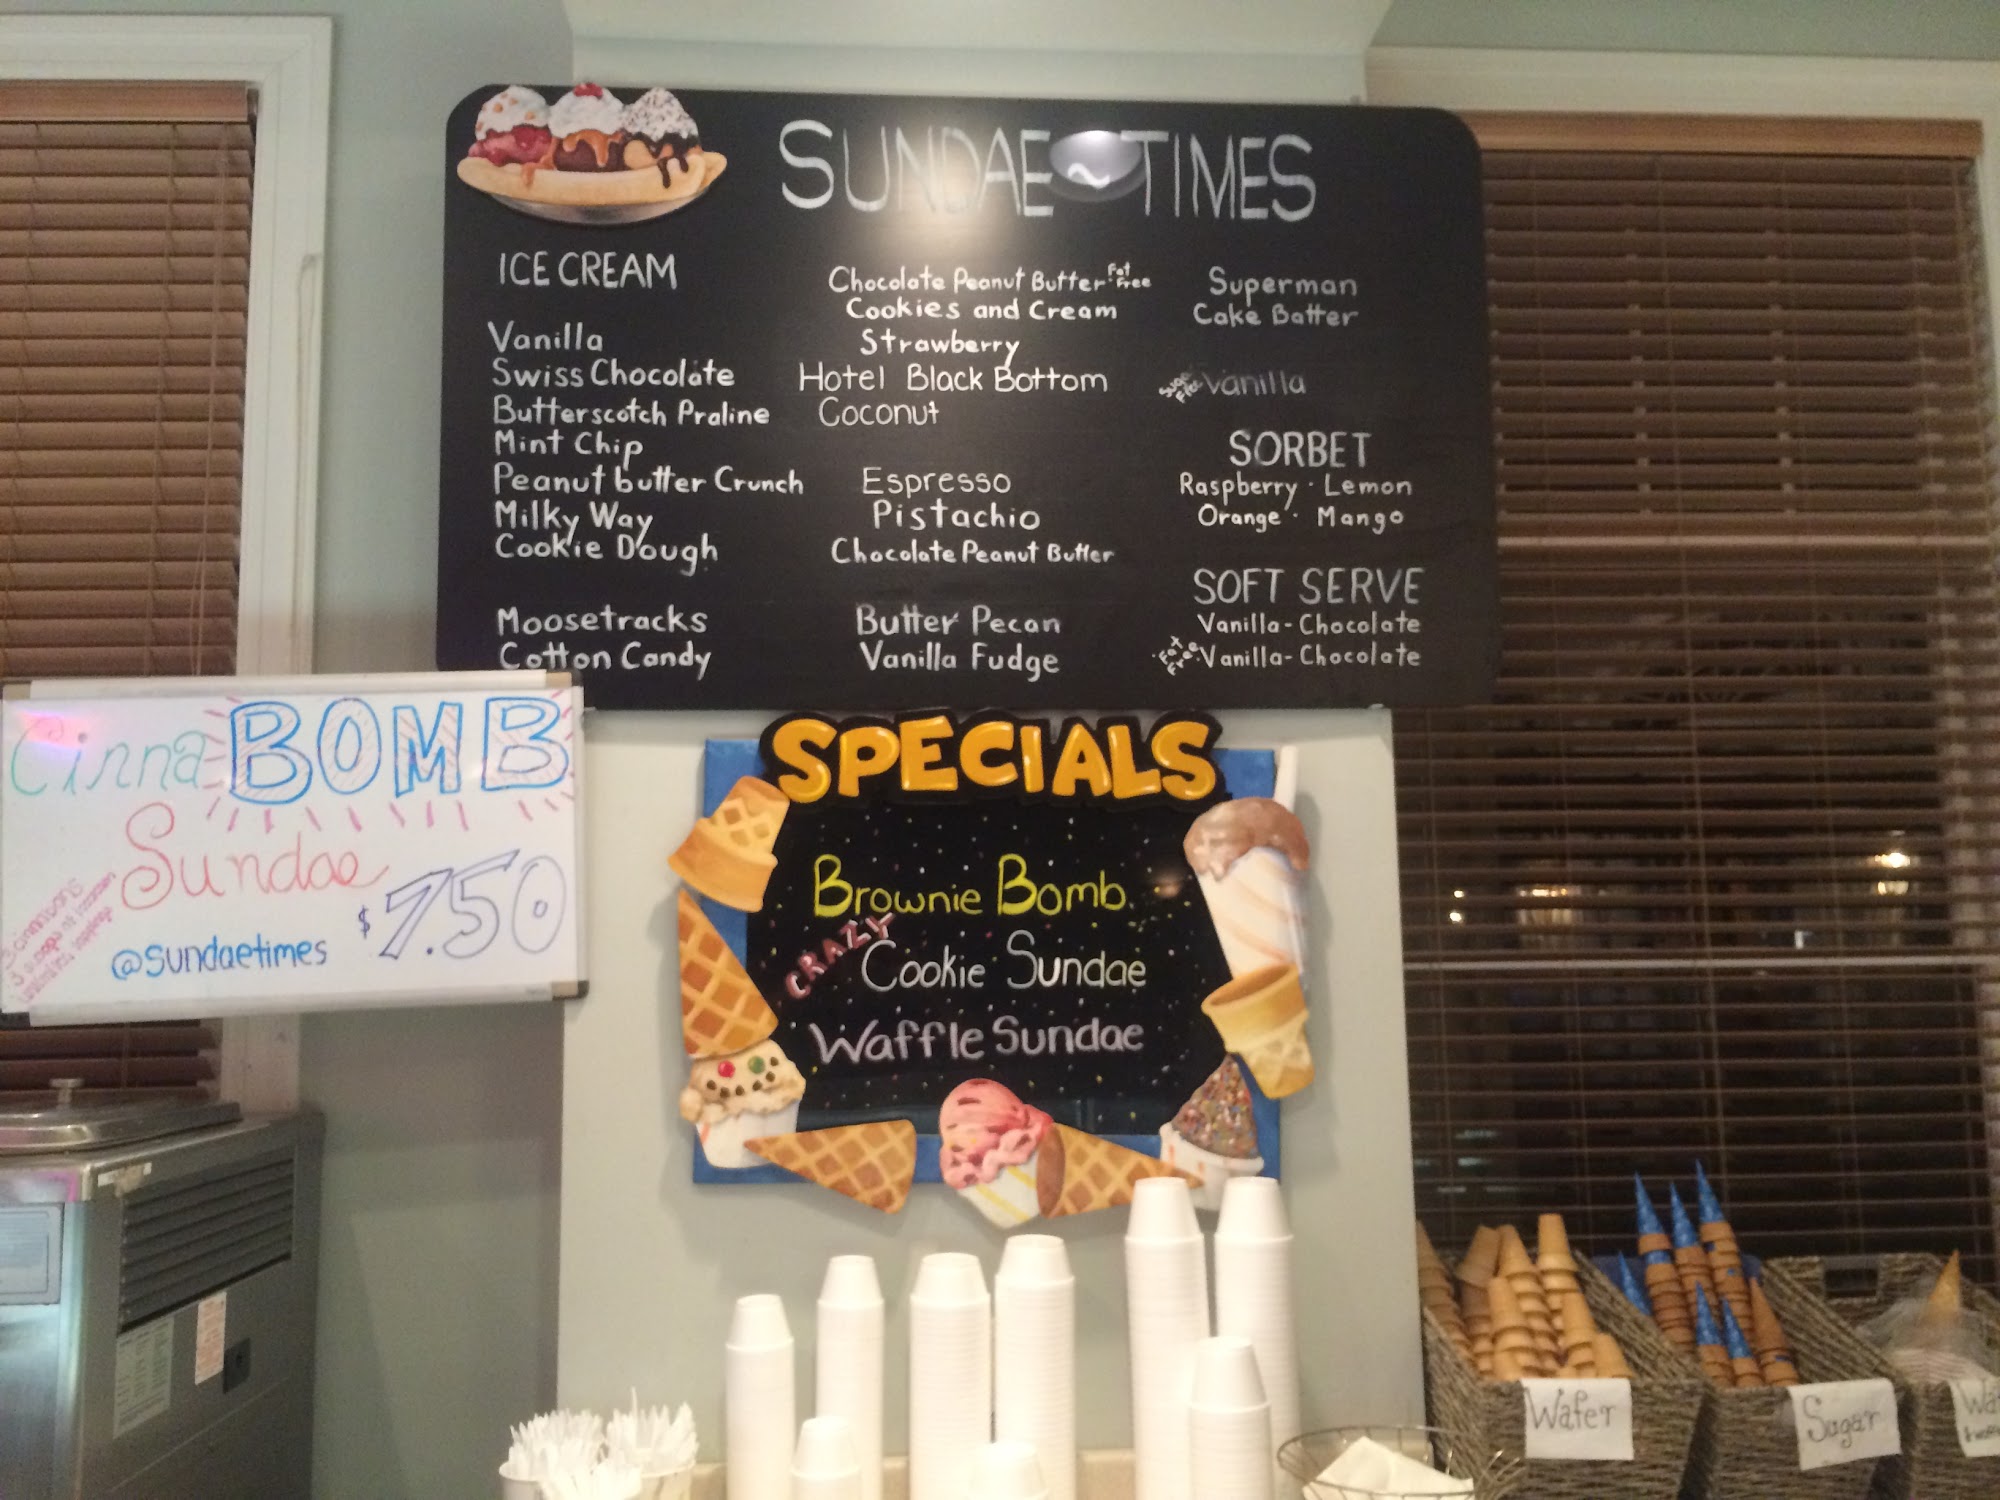 SUNDAE~TIMES
ICE CREAM
Vanilla
Swiss Chocolate
Butterscotch Praline
Mint Chip
Peanut butter Crunch
Milky Way
Cookie Dough
Moosetracks
Cotton Candy
Chocolate Peanut Butter Fat Free
Cookies and Cream
Strawberry
Hotel Black Bottom
Coconut
Espresso
Pistachio
Chocolate Peanut Butter
Butter Pecan
Vanilla Fudge
Superman
Cake Batter
Vanilla
SORBET
Raspberry · Lemon
Orange · Mango
SOFT SERVE
Vanilla-Chocolate
Fat Free Vanilla-Chocolate
Cinna BOMB
Sundae
$7.50
@sundaetimes
SPECIALS
Brownie Bomb
CRAZY Cookie Sundae
Waffle Sundae
Wafer
Sugar